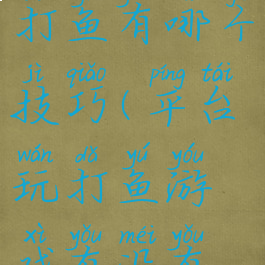 打鱼有哪个
jì qiǎo píng tái
技巧(平台
wán dǎ yú yóu
玩打鱼游
xì yǒu méi yǒu
戏有没有